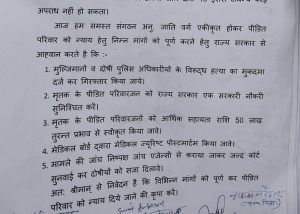 अपराध नहीं हो सकता।
आज हम समस्त संगठन अनु. जाति वर्ग एकीकृत होकर पीड़ित
परिवार को न्याय हेतु निम्न मांगों को पूर्ण करने हेतु राज्य सरकार से
आहवान करते है कि :-
1. मुल्जिमानों व दोषी पुलिस अधिकारीयों के विरूद्ध हत्या का मुकदमा
दर्ज कर गिरफ्तार किया जाये।
2. मृतक के पीड़ित परिवारजन को राज्य सरकार एक सरकारी नौकरी
सुनिश्चित करें।
3. मृतक के पीड़ित परिवारजनों को आर्थिक सहायता राशि 50 लाख
तुरन्त प्रभाव से स्वीकृत किया जावे।
4. मेडिकल बोर्ड द्वारा मेडिकल ज्यूरिष्ट पोस्टमार्टम किया जावे।
5. मामले की जांच निष्पक्ष जांच एजेन्सी से कराया जाकर जल्द कोर्ट
सुनवाई कर दोषीयों को सजा दिलावे।
अतः श्रीमान् से निवेदन है कि विभिन्न मांगों को पूर्ण कर पीड़ित
परिवार को न्याय दिये जाने की कृपा करें।